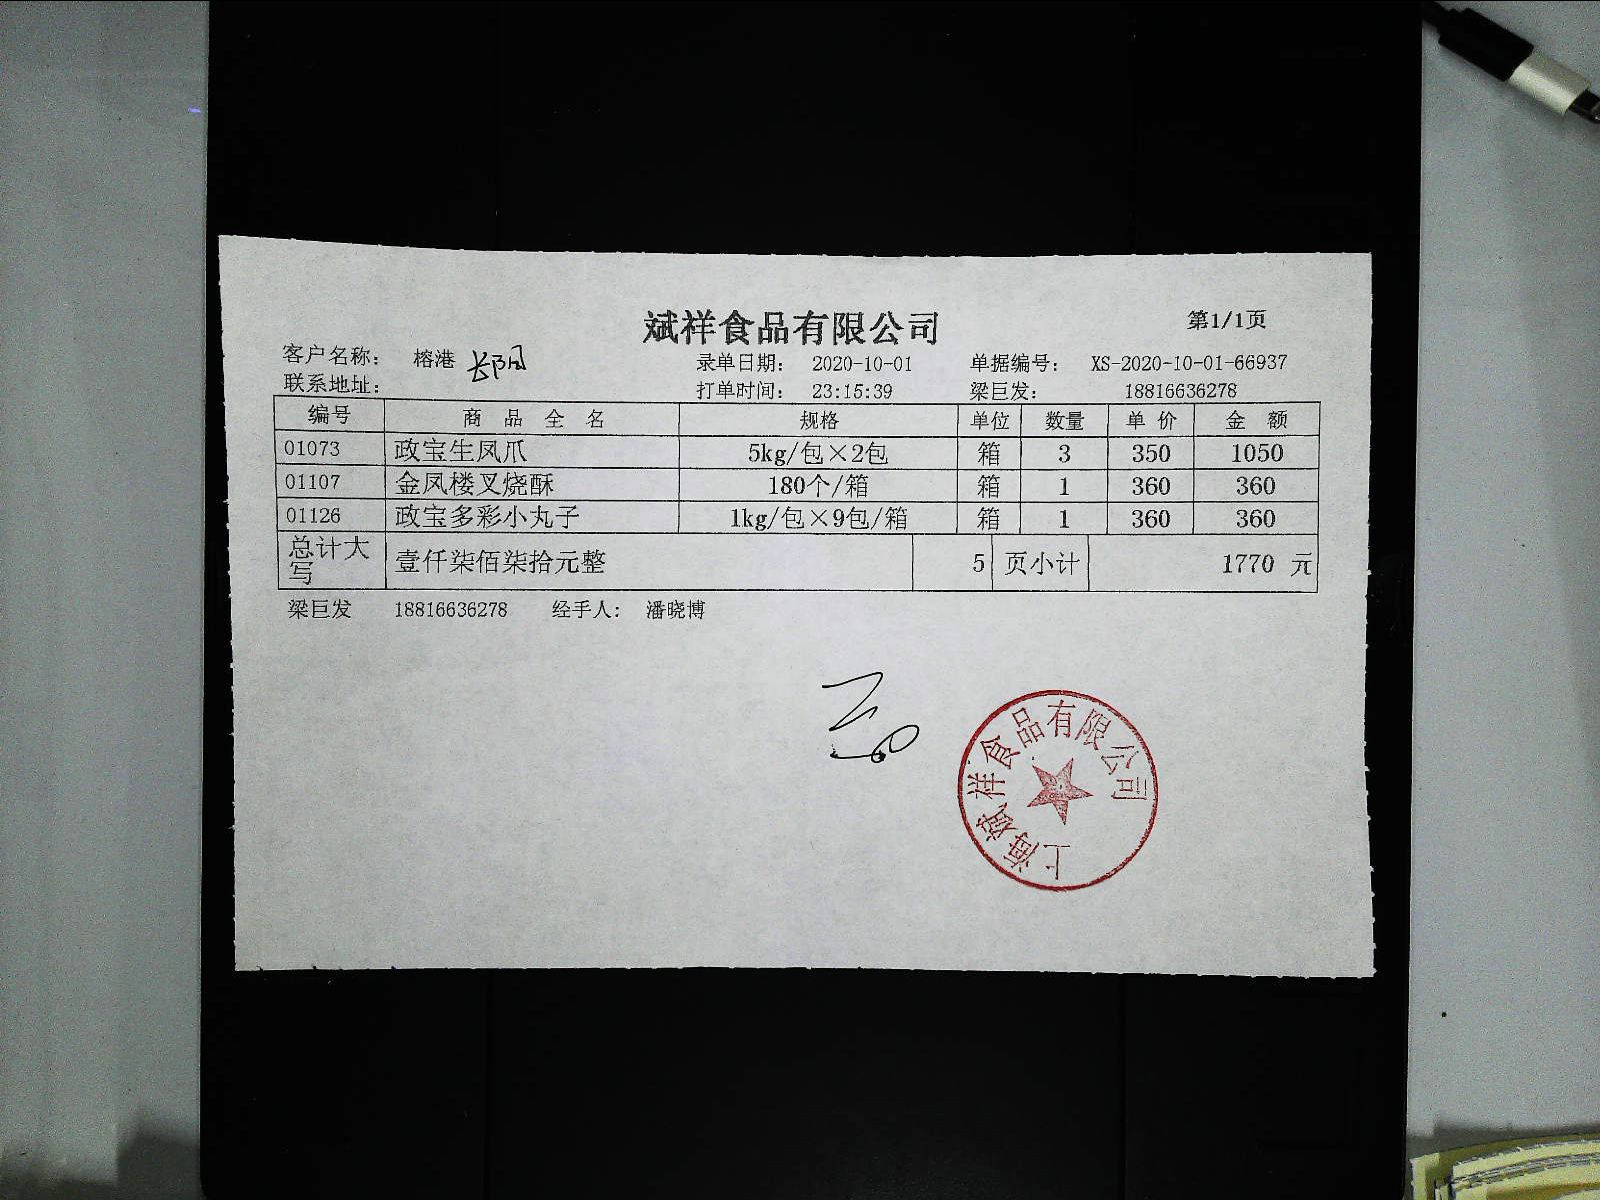 斌祥食品有限公司
第1/1页
客户名称： 榕港 长阳 录单日期： 2020-10-01 单据编号： XS-2020-10-01-66937
联系地址： 打单时间： 23:15:39 梁巨发： 18816636278
编号 商 品 全 名 规格 单位 数量 单 价 金 额
01073 政宝生凤爪 5kg/包×2包 箱 3 350 1050
01107 金凤楼叉烧酥 180个/箱 箱 1 360 360
01126 政宝多彩小丸子 1kg/包×9包/箱 箱 1 360 360
总计大写 壹仟柒佰柒拾元整 5 页小计 1770 元
梁巨发 18816636278 经手人： 潘晓博
上海斌祥食品有限公司